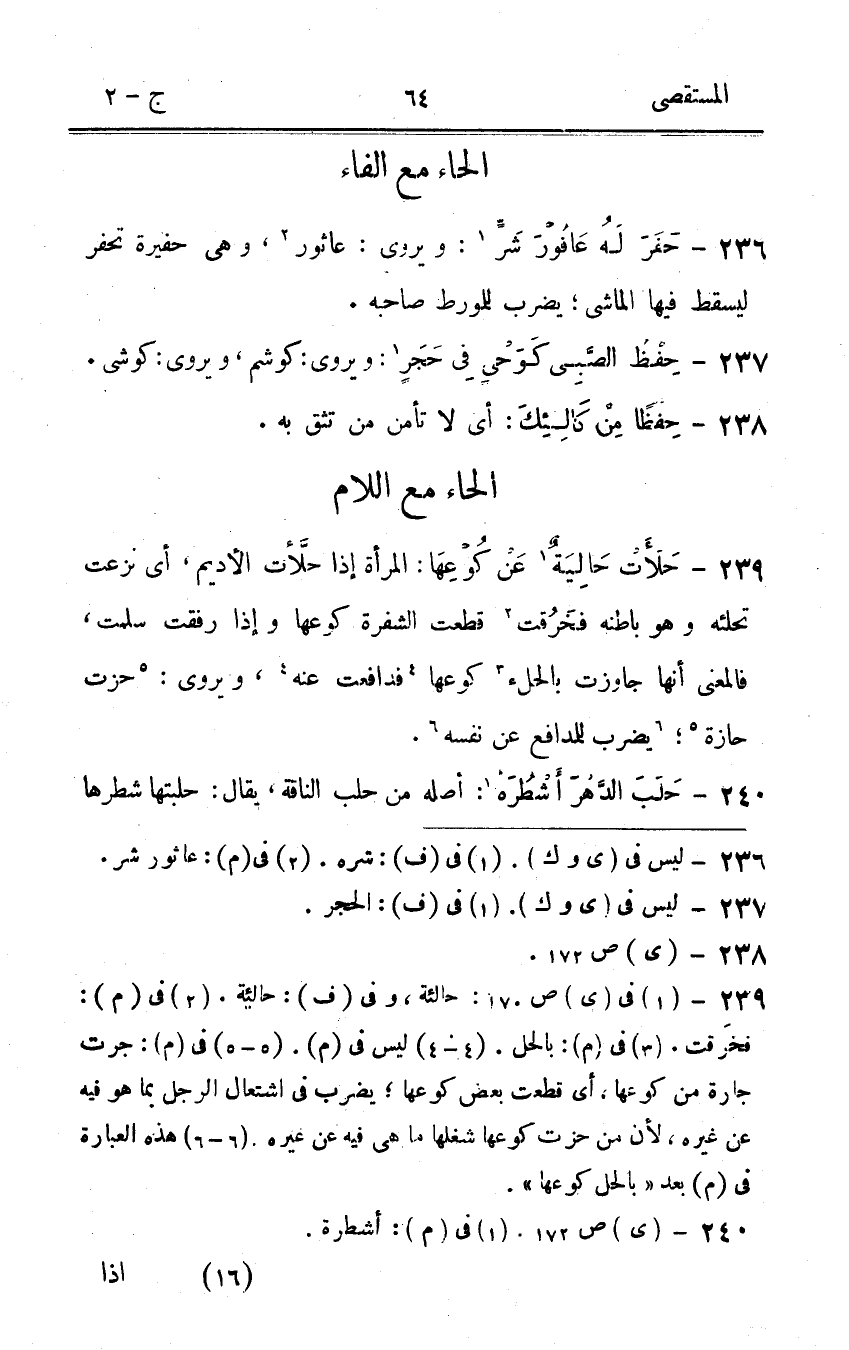 المستقصى ٦٤ ج – ٢
الحاء مع الفاء
٢٣٦ – حَفَرَ لَهُ عَافُوْرَ شَرٍّ ١ : و يروى : عاثور ٢ ، و هى حفيرة تحفر
ليسقط فيها الماشى ؛ يضرب للمورط صاحبه .
٢٣٧ – حِفْظُ الصَّبِـى كَـوَحْىٍ فِى حَجَرٍ ١ : و يروى : كوشم ، و يروى : كوشى .
٢٣٨ – حِفظًا مِنْ كَالِـئِكَ : أى لا تأمن من تثق به .
الحاء مع اللام
٢٣٩ – حَلَأَتْ حَالِيَةٌ ١ عَنْ كُوْعِهَا : المرأة إذا حلَّأت الأديم ، أى نزعت
تحلئه و هو باطنه فَخَرُقت ٢ قطعت الشفرة كوعها و إذا رفقت سلمت ،
فالمعنى أنها جاوزت بالحلء ٣ كوعها ٤ فدافعت عنه ٤ ، و يروى : ٥ حزت
حازة ٥ ؛ ٦ يضرب للدافع عن نفسه ٦ .
٢٤٠ – حَلَبَ الدَّهْرَ أَشْطُرَهْ ١ : أصله من حلب الناقة ، يقال : حلبتها شطرها
٢٣٦ – ليس فى (ى و ك ) . (١) فى (ف) : شره . (٢) فى(م) : عاثور شر .
٢٣٧ – ليس فى (ى و ك ). (١) فى (ف) : الحجر .
٢٣٨ – (ى ) ص ١٧٢ .
٢٣٩ – (١) فى (ى ) ص ١٧٠ : حالئة ، و فى ( ف) : حالئِة . (٢) فى ( م ) :
فخَرقت . (٣) فى (م) : بالحل . (٤ – ٤) ليس فى (م) . (٥ – ٥) فى (م) : جرت
جارة من كوعها ، أى قطعت بعض كوعها ؛ يضرب فى اشتعال الرجل بما هو فيه
عن غيره ، لأن من حزت كوعها شغلها ما هى فيه عن غيره . (٦ – ٦) هذه العبارة
فى (م) بعد « بالحل كوعها » .
٢٤٠ – (ى ) ص ١٧٢ . (١) فى ( م ) : أشطرة .
(١٦) اذا